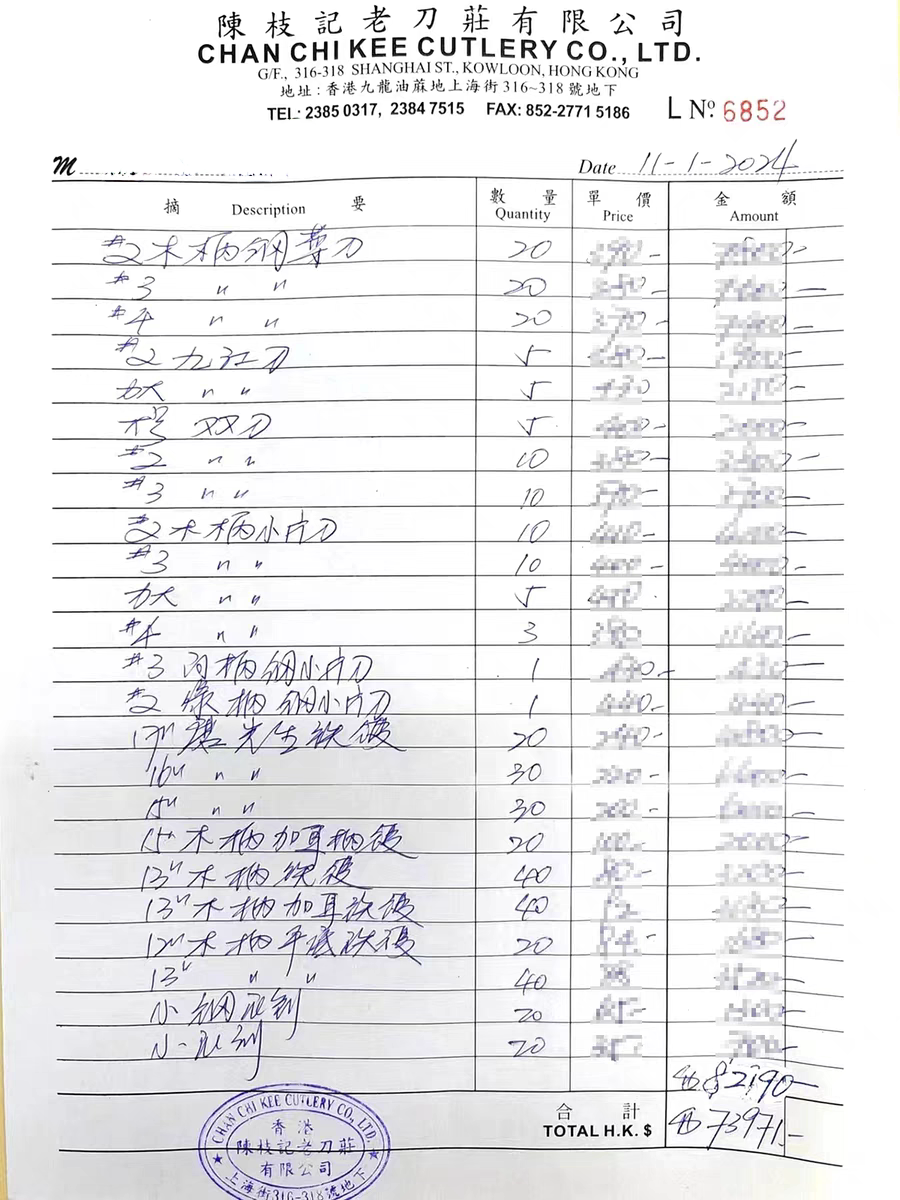 陳枝記老刀莊有限公司
CHAN CHI KEE CUTLERY CO., LTD.
G/F., 316-318 SHANGHAI ST., KOWLOON, HONG KONG
地址：香港九龍油蔴地上海街316~318號地下
TEL: 2385 0317, 2384 7515 FAX: 852-2771 5186 L Nº 6852
M Date 11-1-2024
摘要 Description 數量 Quantity 單價 Price 金額 Amount
#2 木柄鋼 刀 20
#3 〃 〃 20
#4 〃 〃 20
#2 九江刀 5
大 〃 〃 5
双刀 5
#2 〃 〃 10
#3 〃 〃 10
#2 木柄小片刀 10
#3 〃 〃 10
大 〃 〃 5
#4 〃 〃 3
#3 柄鋼小片刀 1
#2 柄鋼小片刀 1
17" 先生鉄鑊 20
16" 〃 〃 30
15" 〃 〃 30
15" 木柄加耳 鑊 20
13" 木柄鉄鑊 40
13" 木柄加耳鉄鑊 40
12" 木柄平底鉄鑊 20
13" 〃 〃 40
小鋼 20
小 20
$82190-
合計 TOTAL H.K. $ 73971-
CHAN CHI KEE CUTLERY CO., LTD.
香港
陳枝記老刀莊
有限公司
上海街316-318號地下